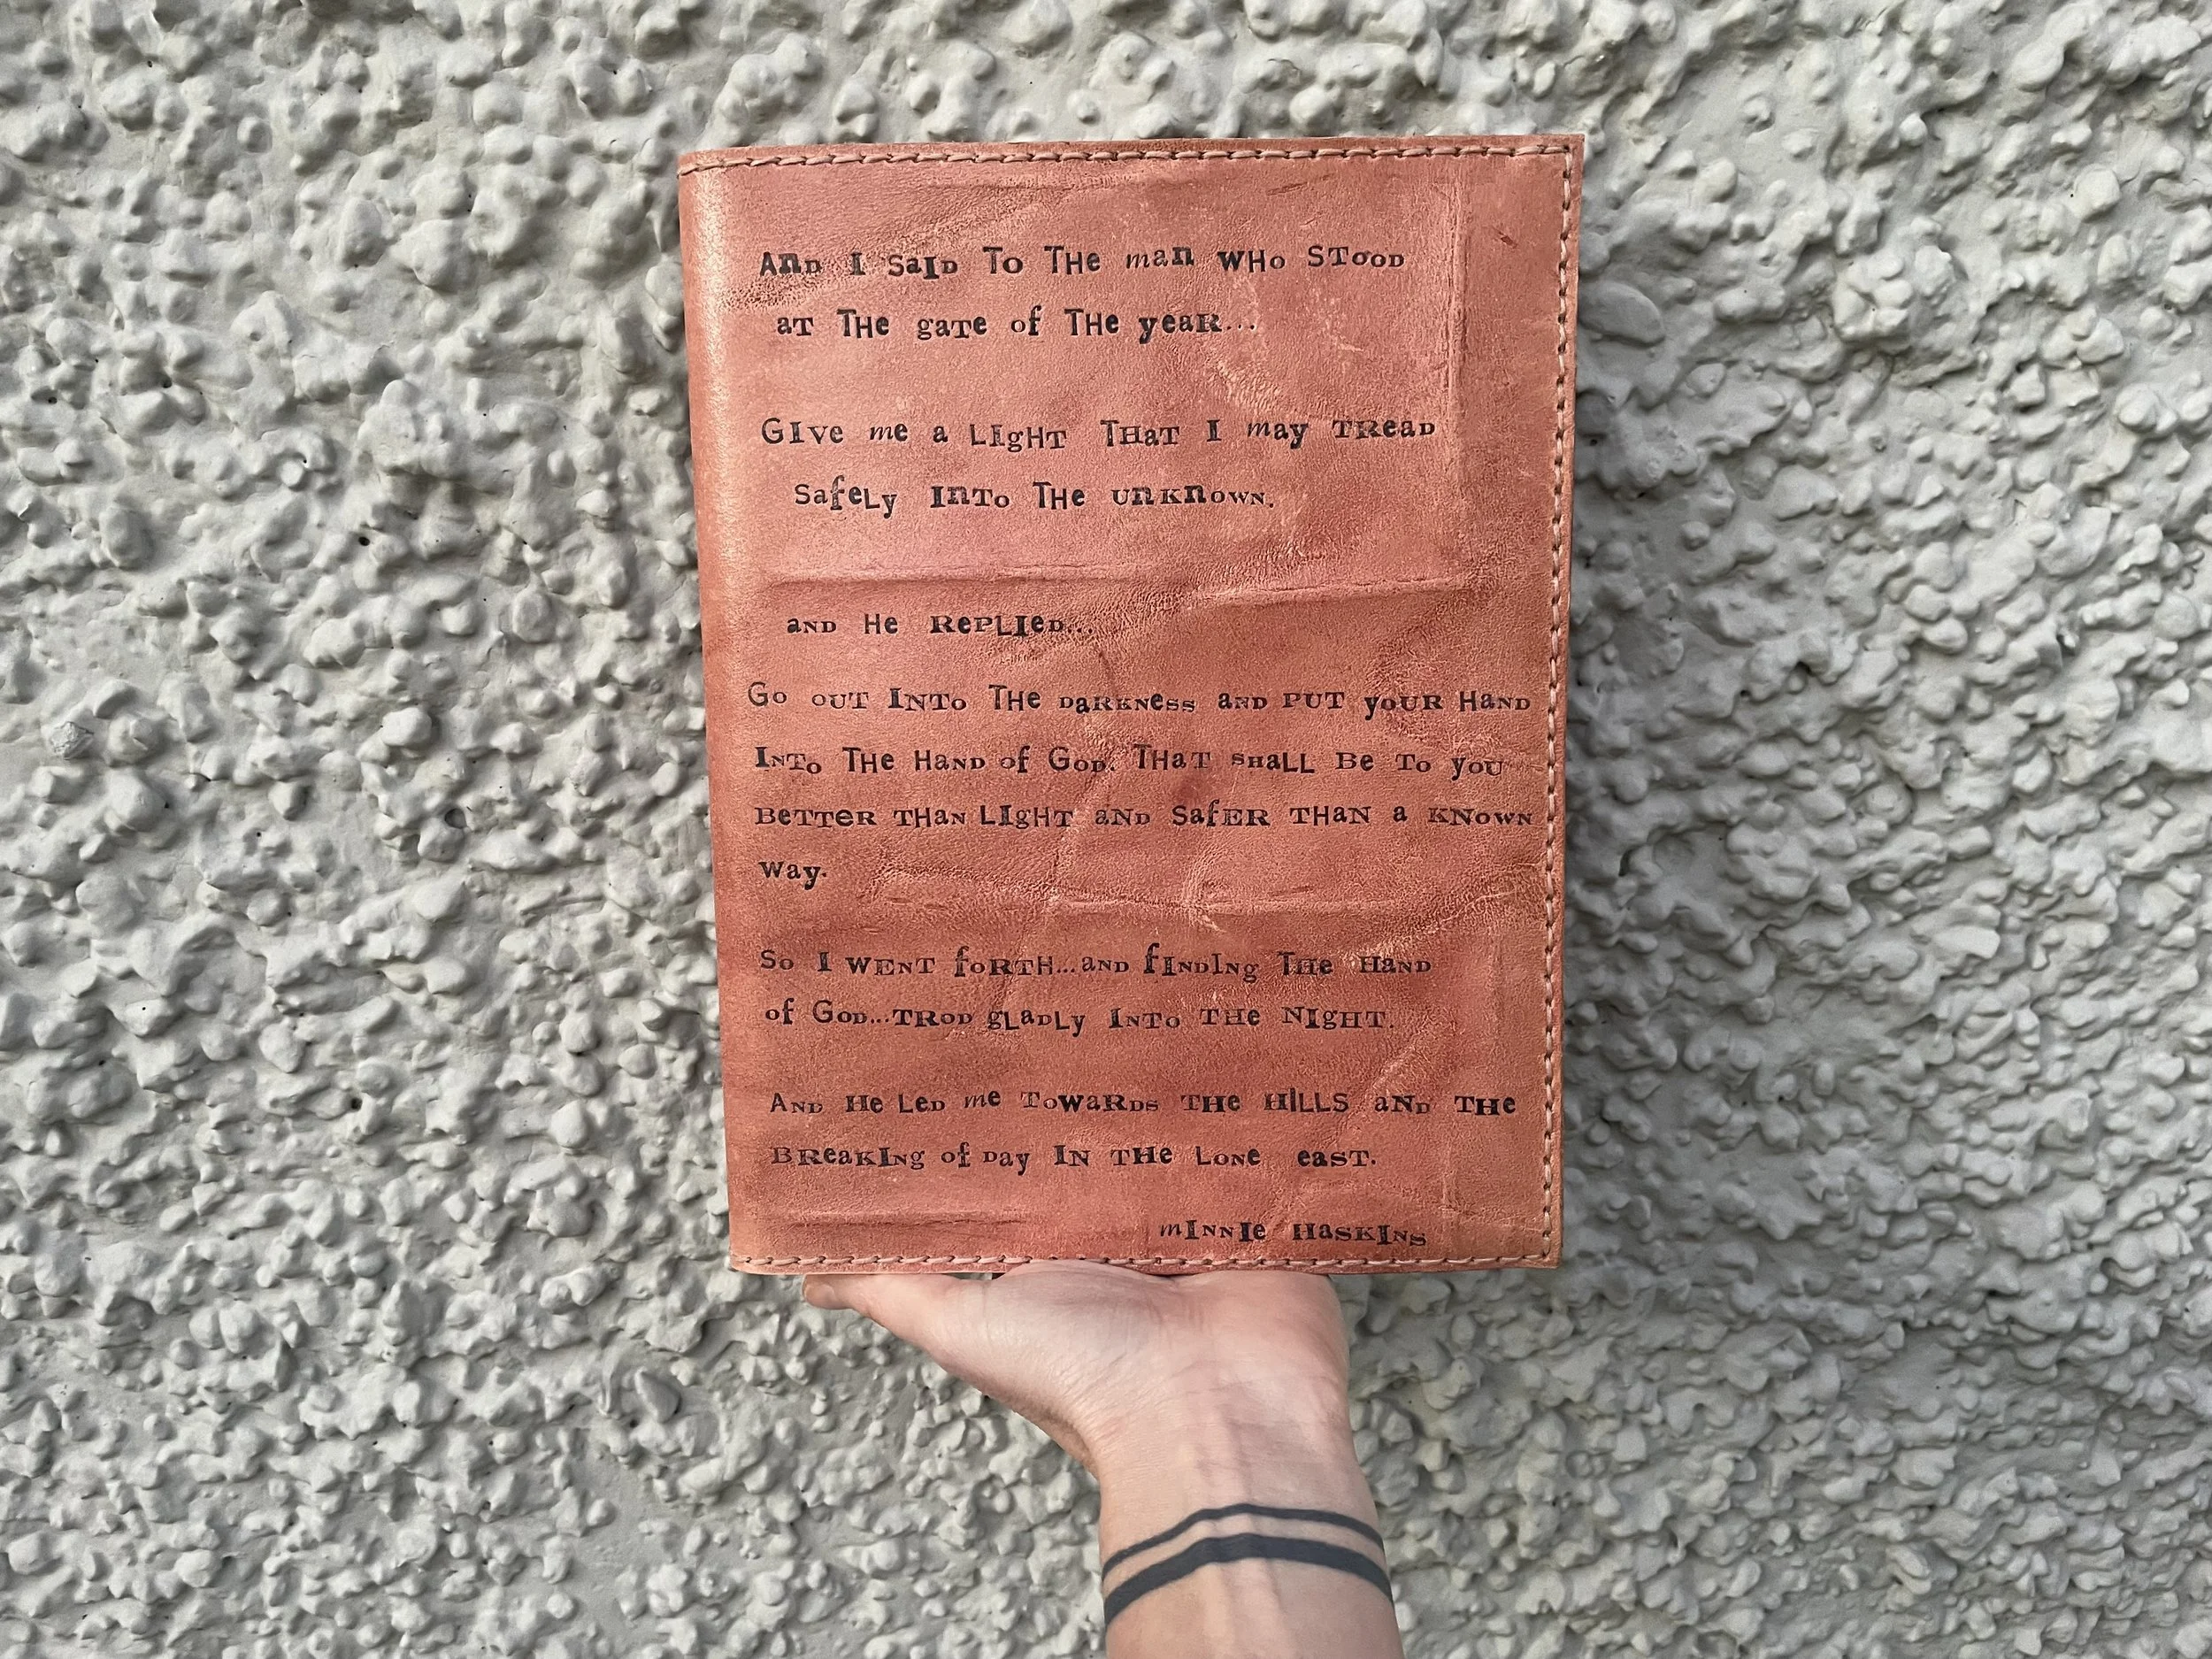 And I saId To THe man wHo STood
aT THe gaTe of THe yeaR...
GIve me a LIgHT THaT I may TRead
SafeLy InTo THe unKnown.
and He RePLIed...
Go ouT InTo THe daRKNess and PUT yoUR Hand
InTo THe Hand of God. THaT sHaLL Be To yoU
BeTTeR THan LIgHT aNd SafER THaN a KNowN
way.
So I wENT foRTH...and fINdIng THe Hand
of God...TRod gLadLy InTo THe NIgHT.
And He Led me TowaRds THe HILLS aNd THe
BReaKIng of day IN THe LoNe eaST.
mINNIe HasKINs